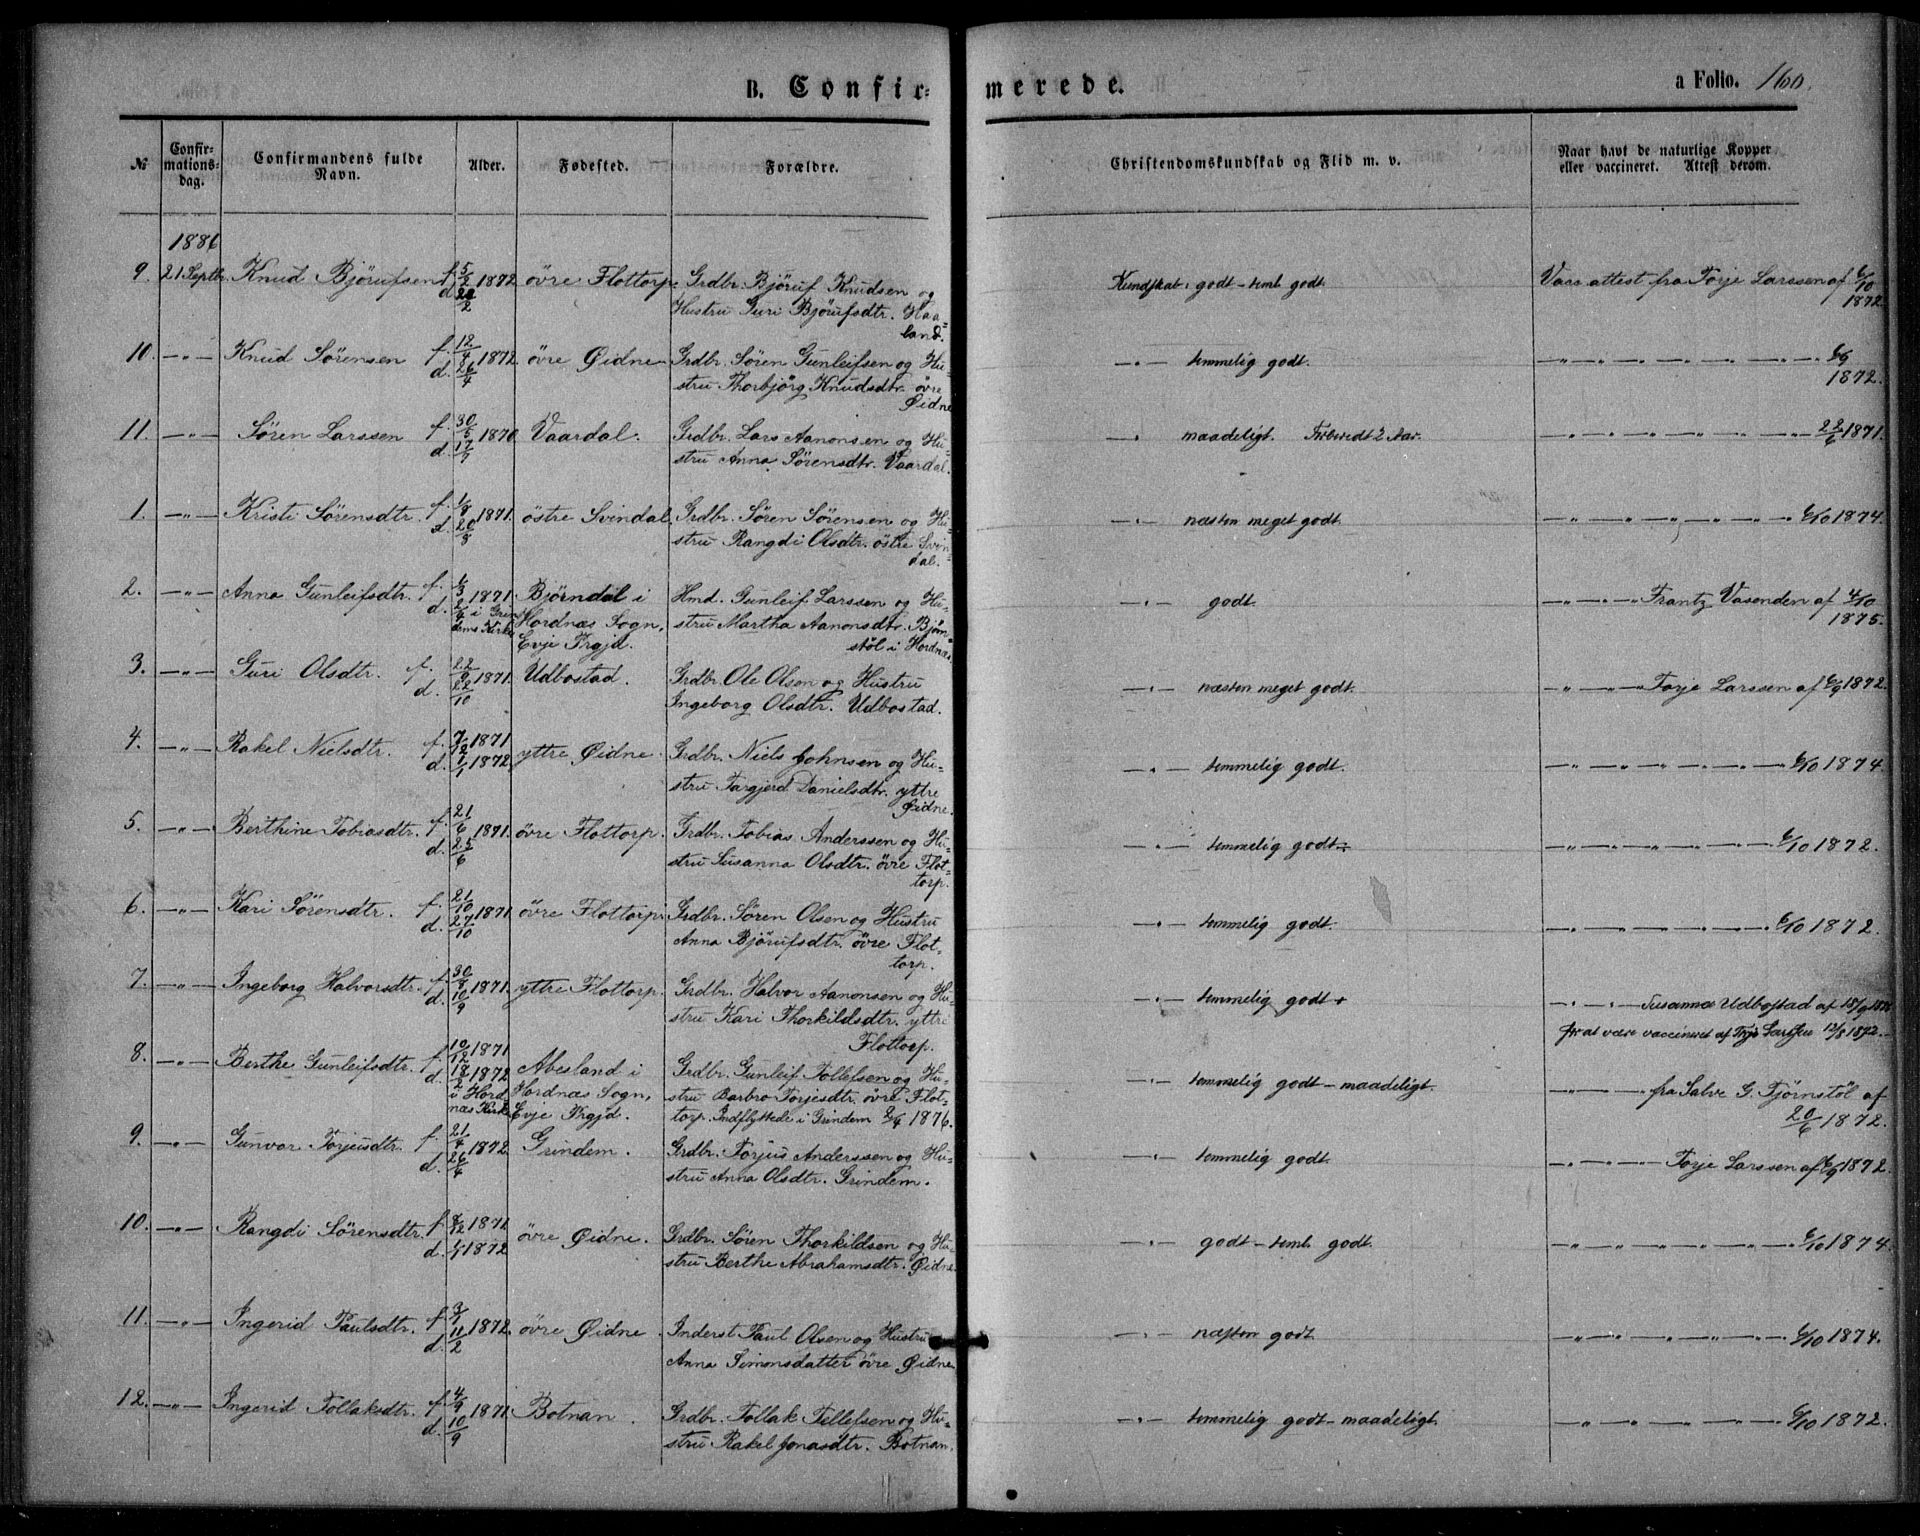 B. Confir-
merede.
a Folio. 160.
№
Confir-
mations-
dag.
Confirmandens fulde
Navn.
Alder.
Fødested.
Forældre.
Christendomskundskab og Flid m. v.
Naar havt de naturlige Kopper
eller vaccineret. Attest derom.
1886
9. 21 Septbr. Knud Bjørufsen f. 5/2 1872 øvre Flottorp. Grdbr. Bjøruf Knudsen og
d. /2 Hustru Guri Bjørufsdtr. Haa-
land.
Kundskab: godt - teml. godt. Vacc.attest fra Torje Larssen af 6/10
1872.
10. -"- Knud Sørensen f. 12/4 1872. øvre Øidne Grdbr. Søren Gunleifsen og Hu-
d. 26/4 stru Thorbjørg Knudsdtr. øvre
Øidne
-"- temmelig godt. -"-"-"-"-"- 6/9
1872.
11. -"- Søren Larssen f. 30/5 1870. Vaardal. Grdbr. Lars Aanonsen og Hu-
d. 17/7 stru Anna Sørensdtr. Vaardal.
" maadeligt. Forberedt 2 Aar. -"-"-"-"- 22/6 1871.
1. -"- Kristi Sørensdtr. f. 1/8 1871. østre Svindal. Grdbr. Søren Sørensen og Hu-
d. 20/8 stru Rangdi Olsdtr. østre Svin-
dal.
-"- næsten meget godt. -"-"-"-"-"- 6/10 1874.
2. -"- Anna Gunleifsdtr. f. 1871. Bjørndal i Hmd. Gunleif Larssen og Hu-
d. i Grin- Hordnæs Sogn, stru Martha Aanonsdtr. Bjørn-
dems Kirke Evje Prgjd. støl i Hordnæs
-"- godt. -"-"-"- Frantz Vasenden af 4/10
1875.
3. -"- Guri Olsdtr. f. 22/ 1871. Udbostad. Grdbr. Ole Olsen og Hustru
d. 22/10 Ingeborg Olsdtr. Udbostad.
-"- næsten meget godt. -"-"-"- Torje Larssen af 6/9 1872.
4. -"- Rakel Nielsdtr. f. 7/12 1871 yttre Øidne. Grdbr. Niels Johnsen og Hu-
d. 1/1 1872. stru Targjerd Danielsdtr. yttre
Øidne.
-"- temmelig godt. -"-"-"-"-"- 6/10 1874.
5. -"- Berthine Tobiasdtr. f. 21/6 1871. øvre Flottorp. Grdbr. Tobias Anderssen og Hu-
d. 25/6 stru Susanna Olsdtr. øvre Flot-
torp.
-"- temmelig godt÷ -"-"-"-"-"- 6/10 1872.
6. -"- Kari Sørensdtr. f. 21/10 1871. øvre Flottorp. Grdbr. Søren Olsen og Hustru
d. 27/10 Anna Bjørufsdtr. øvre Flot-
torp.
-"- temmelig godt. -"-"-"-"-"- 6/10 1872.
7. -"- Ingeborg Halvorsdtr. f. 30/8 1871. yttre Flottorp. Grdbr. Halvor Aanonsen og Hu-
d. 10/9 stru Kari Thorkildsdtr. yttre
Flottorp.
-"- temmelig godt + -"-"- Susanna Udbostad af 18/9
for at være vaccineret af Torje Larssen 12/8 1872.
8. -"- Berthe Gunleifsdtr. f. 10/12 1871 Abesland i Grdbr. Gunleif Tollefsen og Hu-
d. 18/2 1872 Hordnæs Sogn, stru Barbro Torjesdtr. øvre Flot-
i Hord- Evje Prgjd. torp. Indflyttede i Grindem 1876.
næs Kirke
-"- temmelig godt - maadeligt. -"-"- fra Salve G. Tjørnstøl af
20/6 1872.
9. -"- Gunvor Torjusdtr. f. 21/4 1872. Grindem. Grdbr. Torjus Anderssen og Hu-
d. 26/4 stru Anna Olsdtr. Grindem.
-"- temmelig godt. -"-"-"- Torje Larssen af 6/9 1872.
10. -"- Rangdi Sørensdtr. f. /12 1871 øvre Øidne. Grdbr. Søren Thorkildsen og Hu-
d. 1/1 1872 stru Berthe Abrahamsdtr. Øidne.
-"- godt - teml. godt. -"-"-"-"-"- 6/10 1874.
11. -"- Ingerid Paulsdtr. f. 3/1 1872. øvre Øidne. Inderst Paul Olsen og Hustru
d. 11/2 Anna Simonsdatter øvre Øidne.
-"- næsten godt. -"-"-"-"-"- 6/10 1874.
12. -"- Ingerid Tollaksdtr. f. 4/9 1871. Botnan. Grdbr. Tollak Tellefsen og Hu-
d. 10/9 stru Rakel Jonasdtr. Botnan.
-"- temmelig godt - maadeligt. -"-"-"-"-"- 6/10 1872.